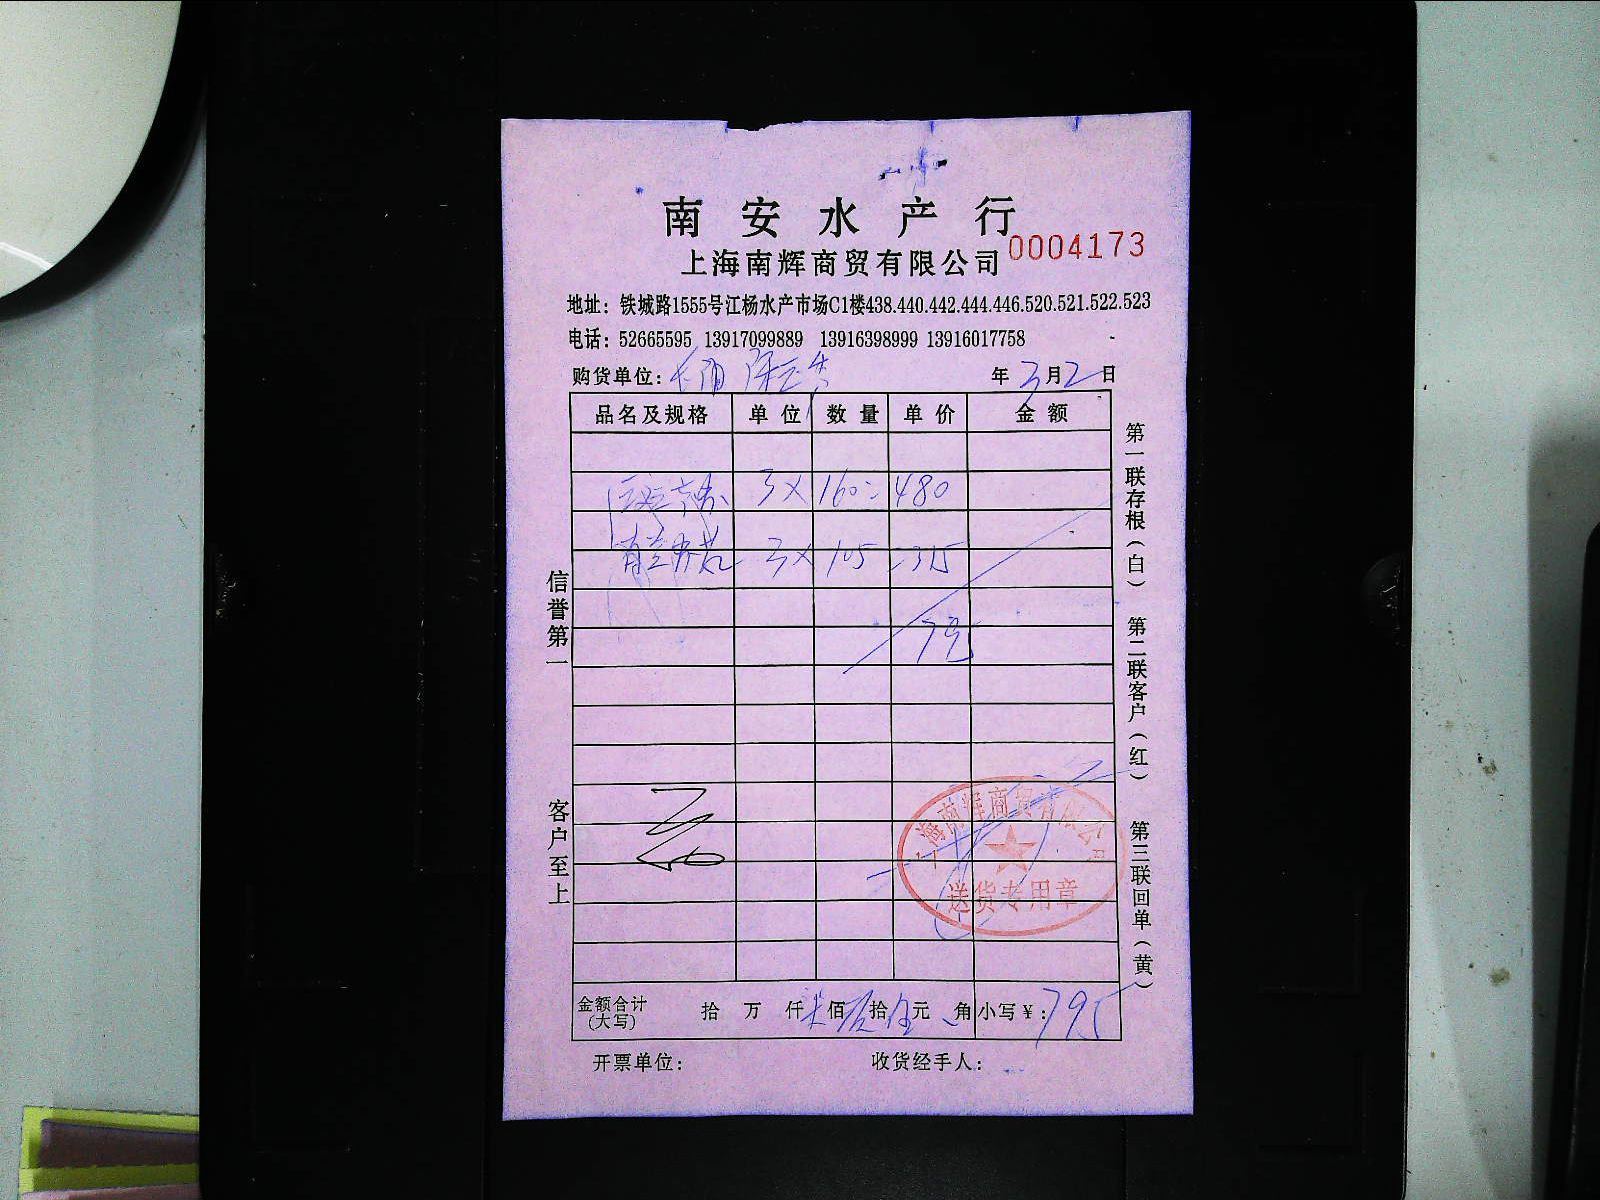 南安水产行
上海南辉商贸有限公司 0004173
地址：铁城路1555号江杨水产市场C1楼438.440.442.444.446.520.521.522.523
电话：52665595 13917099889 13916398999 13916017758
购货单位： 年3月2日
品名及规格 单位 数量 单价 金额
3×160=480
3×105=315
信誉第一
客户至上
第一联存根（白） 第二联客户（红） 第三联回单（黄）
上海南辉商贸有限公司
送货专用章
金额合计（大写） 拾 万 仟 柒佰 拾 元 角 小写￥：795
开票单位： 收货经手人：